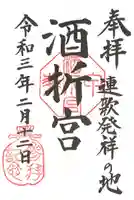 奉拝
連歌発祥の地
酒折宮
令和三年二月十二日